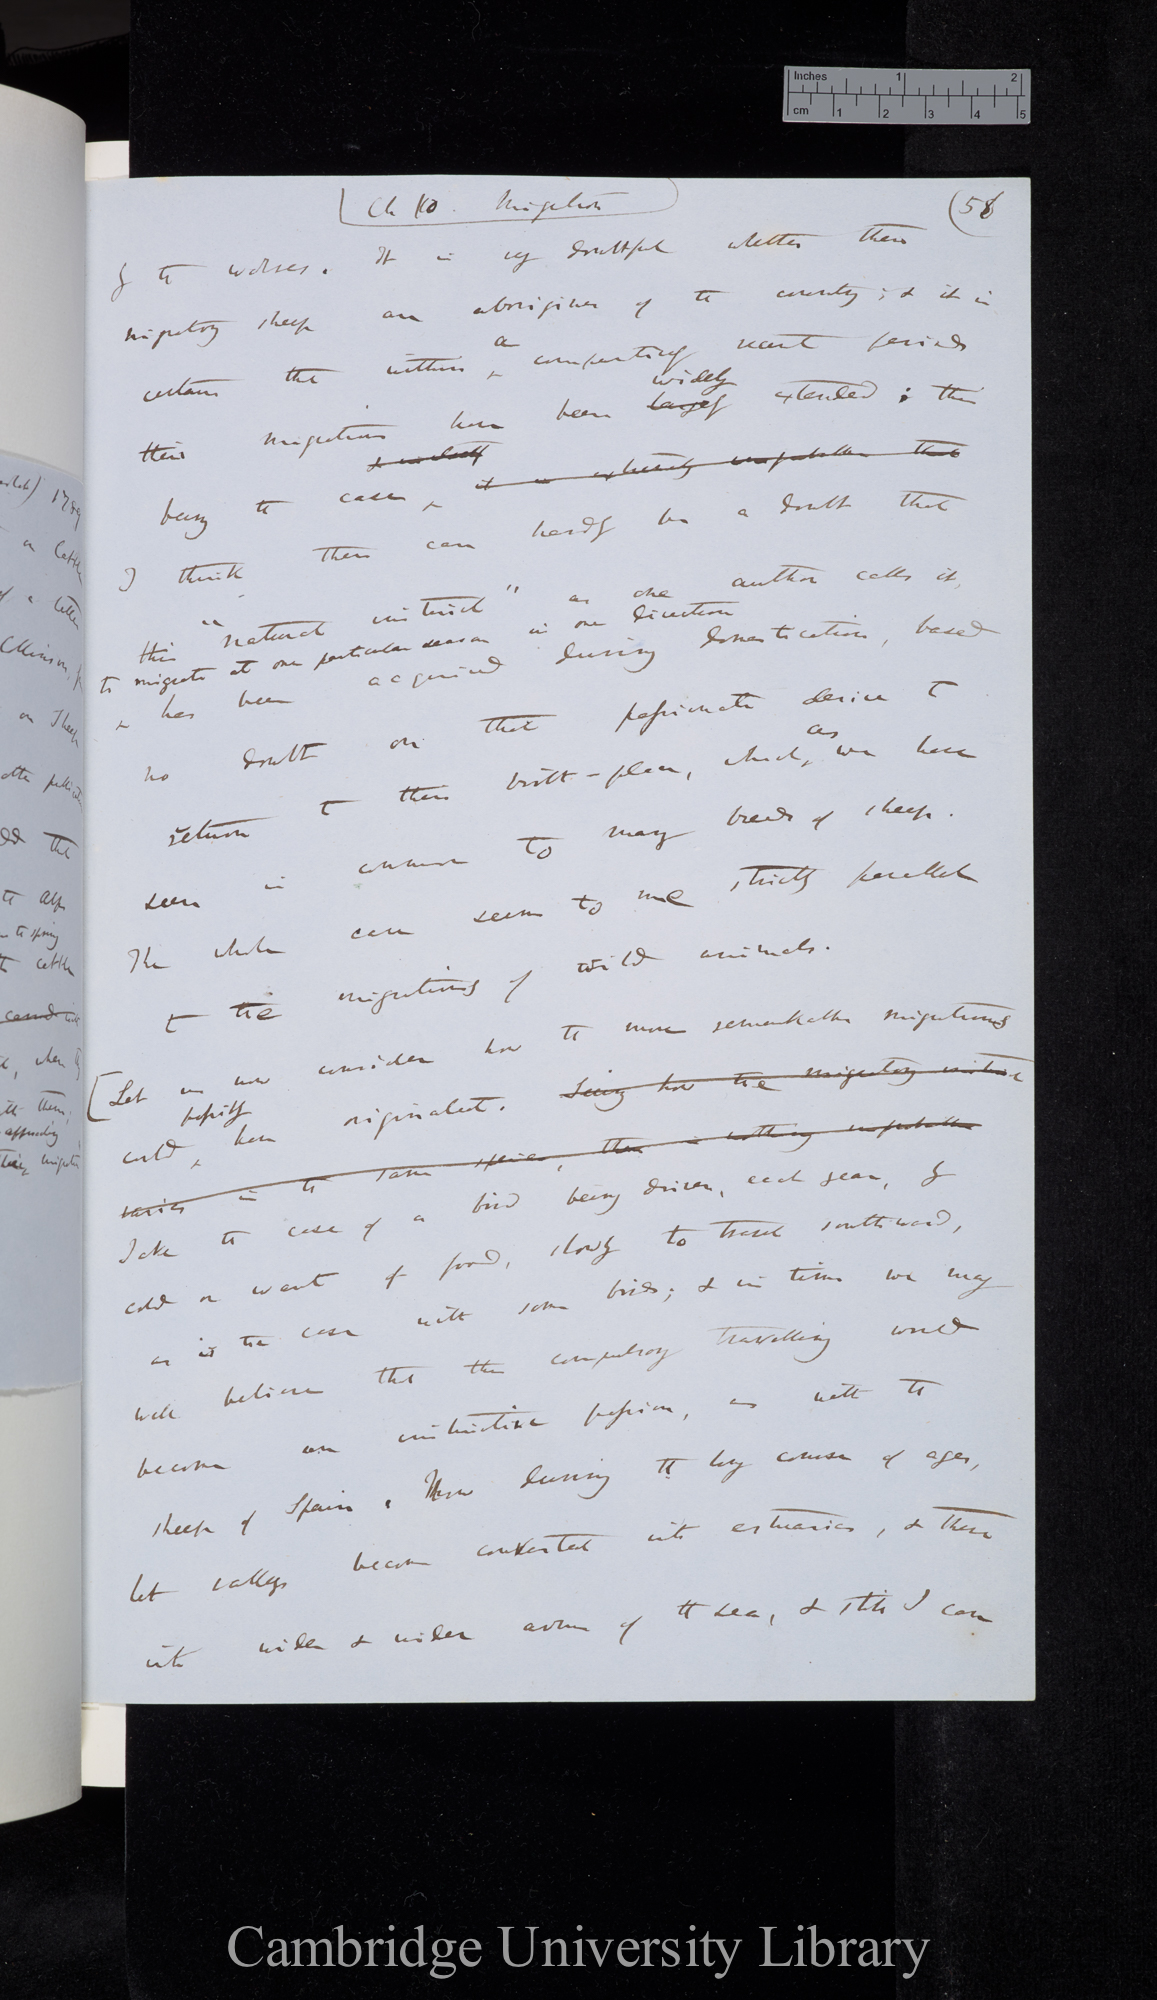 Inches 1 2
cm 1 2 3 4 5
Ch 10. Migration
(58
by the wolves. It is very doubtful whether these
migratory sheep are aborigines of the country; & it is
a
certain that within comparatively recent periods
widely
their migrations have been largely extended; this
being the case, it is extremely improbable that
I think there can hardly be a doubt that
this "natural instinct" as one author calls it,
to migrate at one particular season in one direction
has been acquired during domestication, based
no doubt on that passionate desire to
as
return to their birth-place, which, we have
seen is common to many breeds of sheep.
The whole case seems to me strictly parallel
to the migrations of wild animals.
[Let us now consider how the more remarkable migrations
possibly
could have originated. Seeing how the migratory instinct
varies in the same species, there is nothing improbable
Take the case of a bird being driven, each year, by
cold or want of food, slowly to travel southward,
as is the case with some birds; & in time we may
well believe that the compulsory travelling would
become an instinctive passion, as with the
sheep of Spain. Now during the long course of ages,
let valleys become converted into estuaries, & then
into wider & wider arms of the sea, & still I can
Cambridge University Library